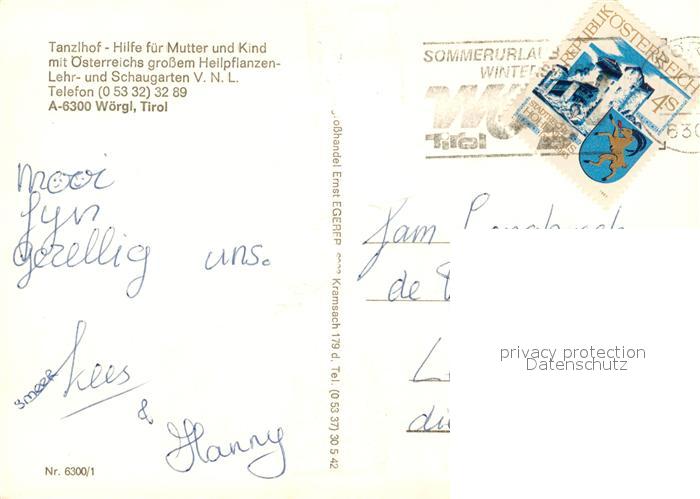 Tanzlhof - Hilfe für Mutter und Kind
mit Österreichs großem Heilpflanzen-
Lehr- und Schaugarten V. N. L.
Telefon (0 53 32) 32 89
A-6300 Wörgl, Tirol
SOMMERURLAUB
WINTERS
Tirol
630
REPUBLIK ÖSTERREICH
4 S
mooi
fyn
gezellig uns.
Kees
&
Hanny
Nr. 6300/1
oßhandel Ernst EGERER, Kramsach 179 d. Tel. (0 53 37) 30 5 42
Fam
de
L
die
privacy protection
Datenschutz